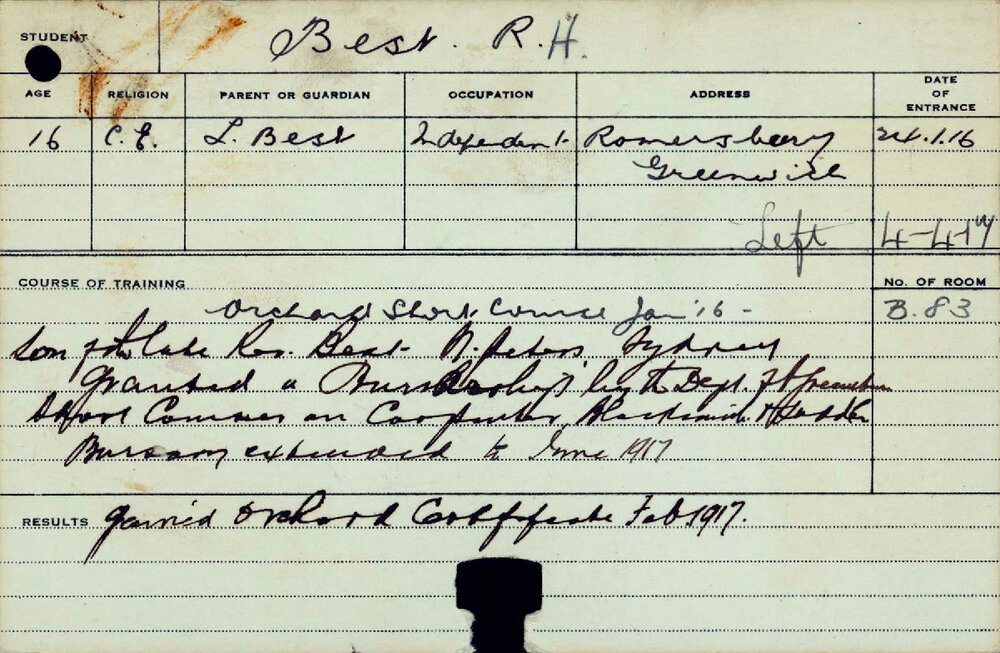 STUDENT Best. R.H.
AGE RELIGION PARENT OR GUARDIAN OCCUPATION ADDRESS DATE OF ENTRANCE
16 C.E. L. Best Independent Romersbury 24.1.16
Greenwich
Left 4-4-17
COURSE OF TRAINING No. OF ROOM
Orchard Short Course Jan '16 - B. 83
Son of the late Rev. Best St. Peters, Sydney
Granted a by the Dept. of
Short Courses on Carpenter, Blacksmith &
Bursary extended to June 1917
RESULTS gained Orchard Certificate Feb. 1917.